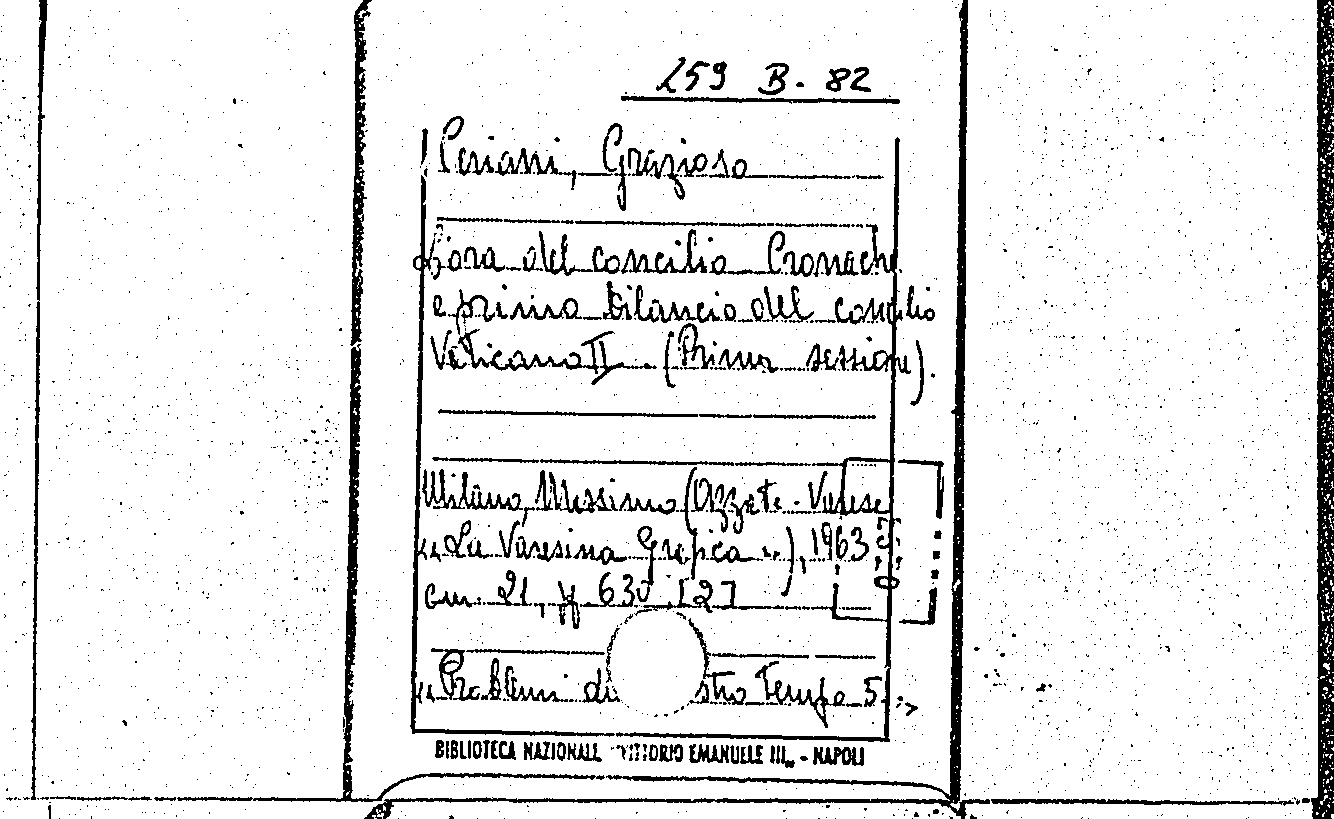 259 B. 82
Ceriani, Grazioso
L'ora del concilio Cronache
e primo bilancio del concilio
Vaticano II. (Prima sessione).
Milano, Massimo (Azzate-Varese
"La Varesina Grafica"), 1963
cm. 21, pp 630 [2]
"Problemi del stro Tempo 5"
BIBLIOTECA NAZIONALE "VITTORIO EMANUELE III„ - NAPOLI